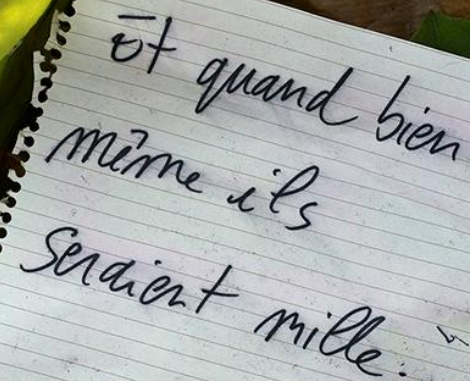 Et quand bien
même ils
seraient mille.